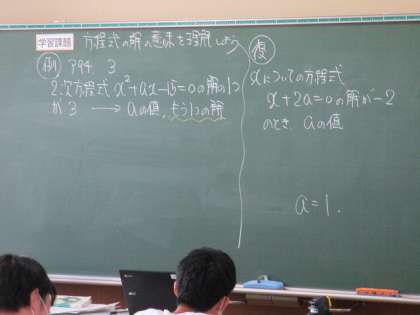 学習課題 方程式の解の意味を理解しよう
例 P94. 3
2次方程式 x²+ax-15=0の解の1つ
が3 → aの値, もう1つの解
復
xについての方程式
x+2a=0の解が-2
のとき, aの値
a=1.